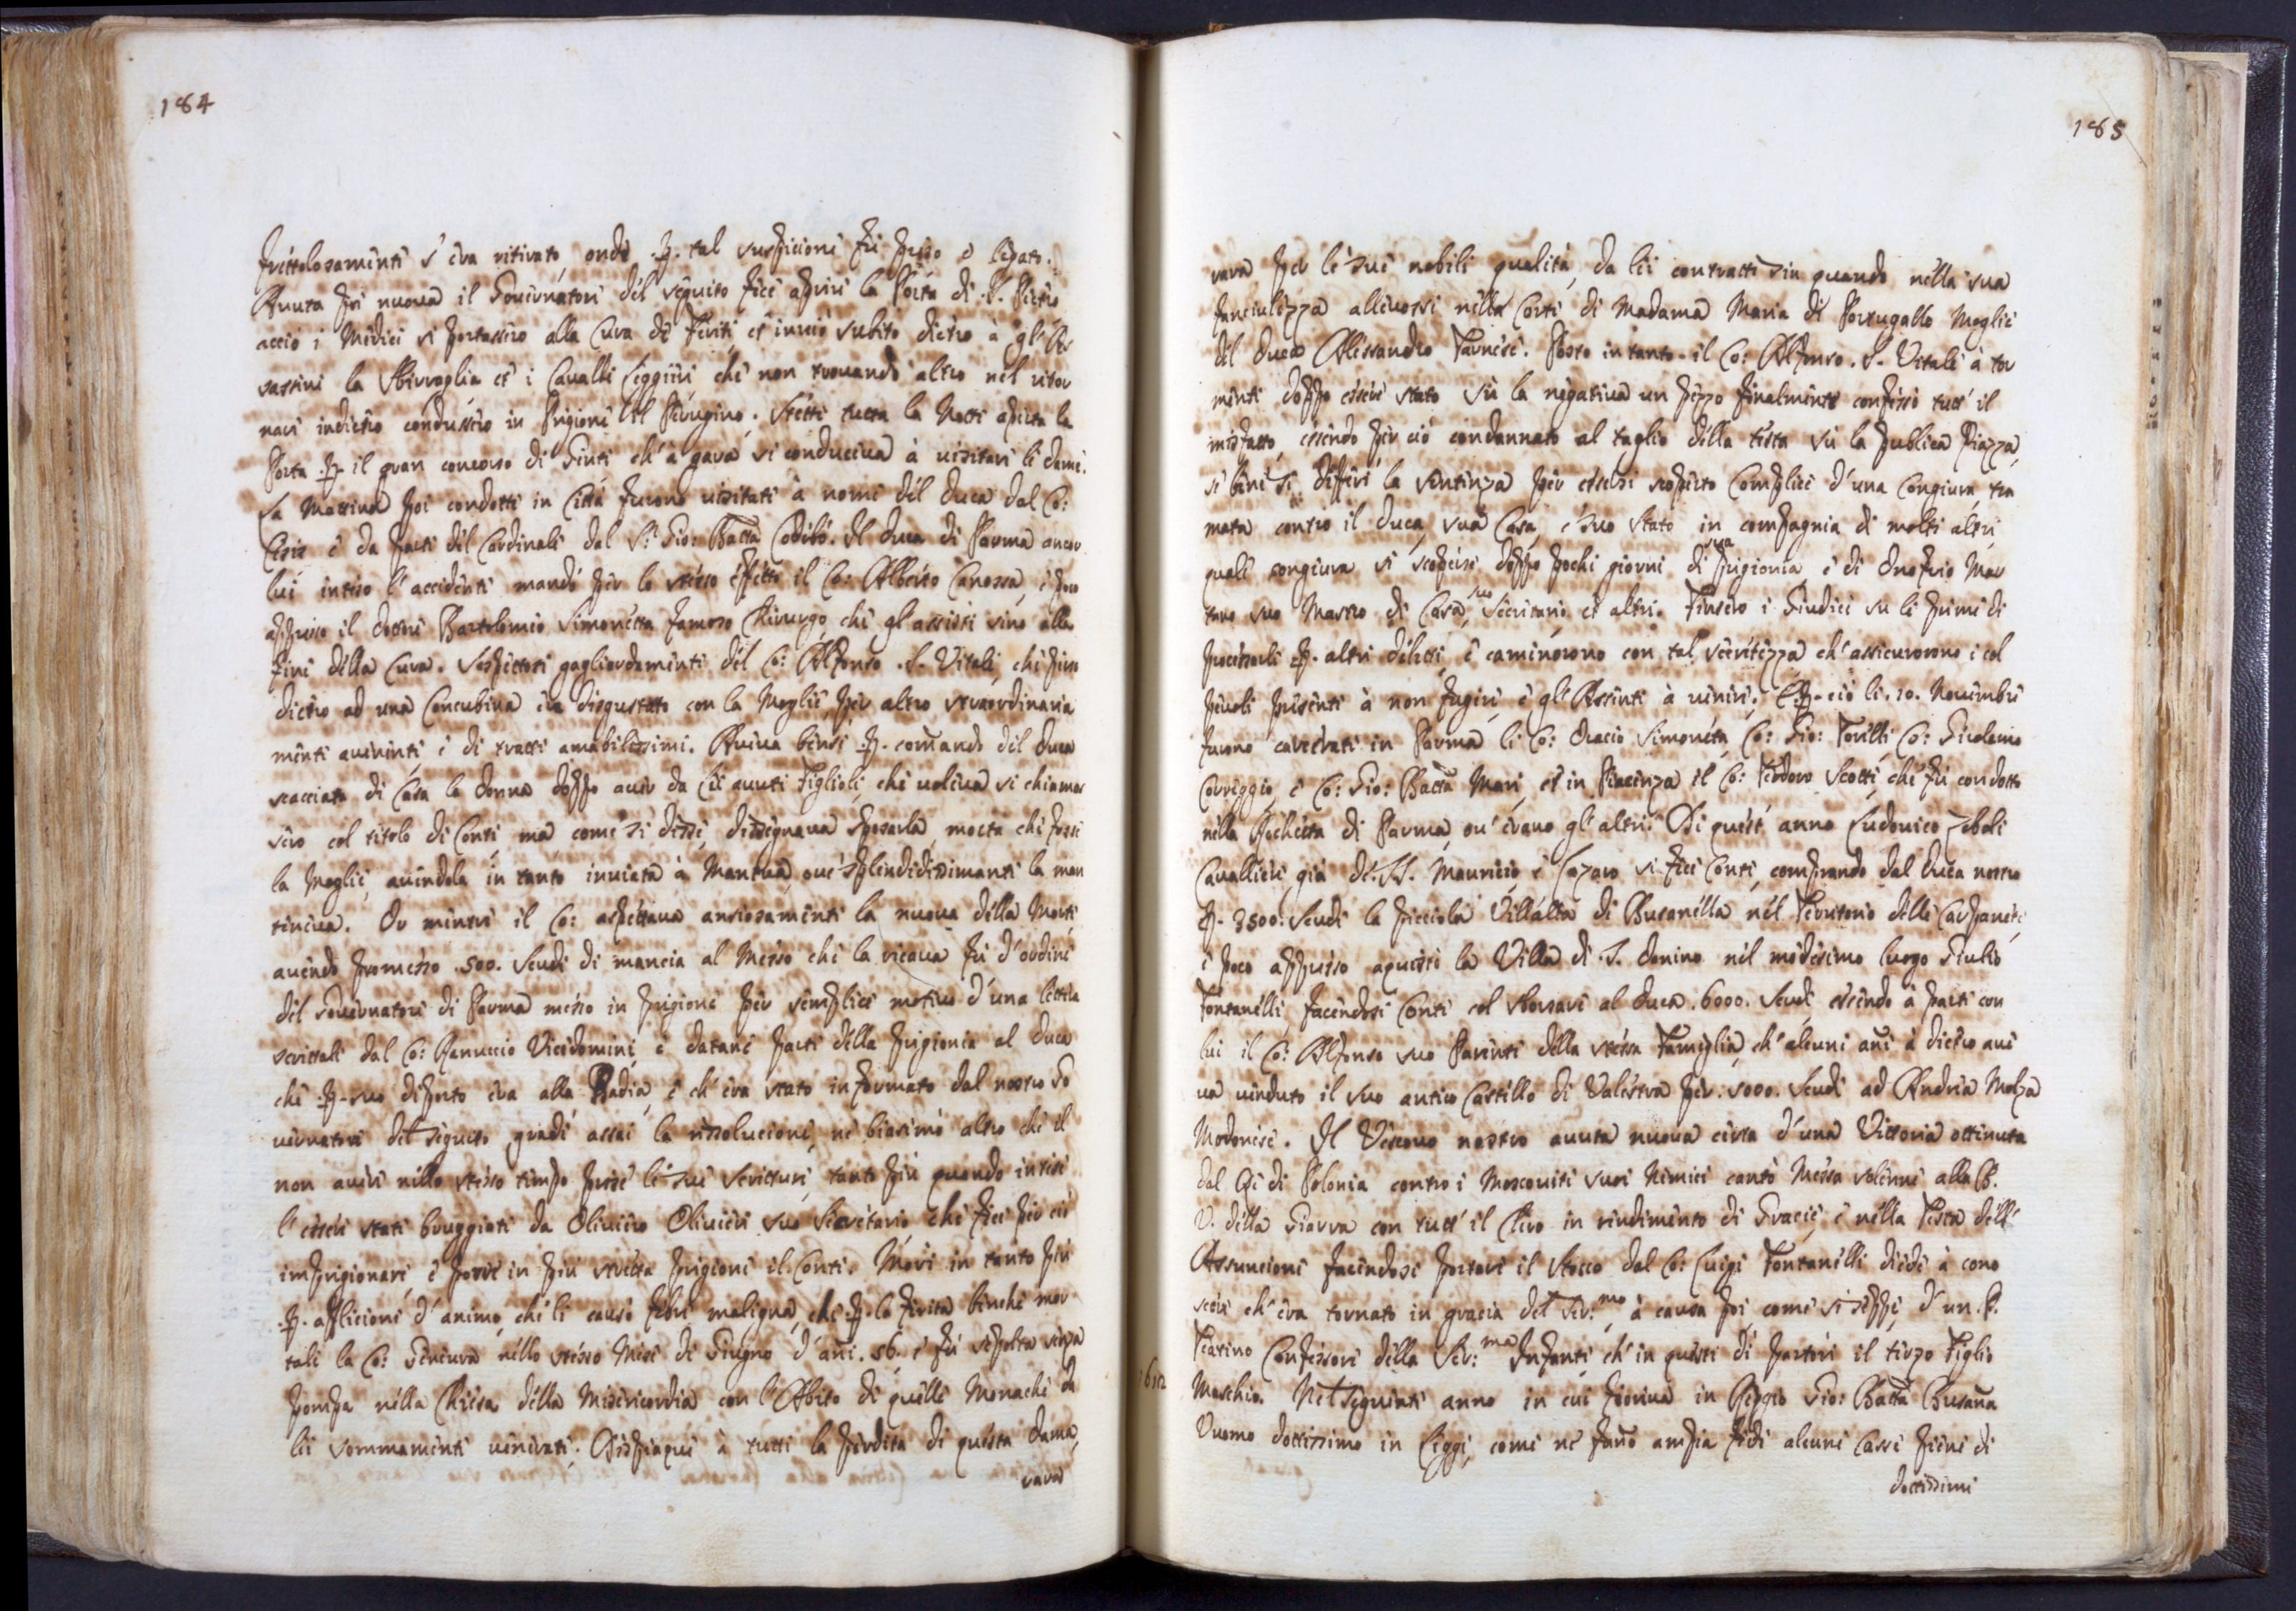 184
frettolosamente s'era ritirato, onde p. tal suspicione fù preso e legato.
Avuta poi nuova il Governatore del seguito fece aprire la Porta di S. Pietro
acciò i Medici si portassero alla Cura de Feriti, et inviò subito dietro à gl'As
sassini la Sbirraglia et i Cavalli Leggieri che non trovando altro nel ritor
narsi indietro condussero in Prigione il Perugino. Stette tutta la Notte aperta la
Porta p. il gran concorso di Gente ch'à gara si conduceva à visitare le Dame.
La Mattina poi condotte in Città furono visitate à nome del Duca dal Co:
Cesis e da parte del Cardinale dal S.r Gio: Batta Codibò. Il Duca di Parma ancor
lui inteso l'accidente mandò per lo stesso effetto il Co: Alberto Canossa, e poco
appresso il Dottore Bartolomeo Simonetta famoso Chirurgo, che gl'assistè sino alla
fine della Cura. Sospettosi gagliardamente del Co: Alfonso S. Vitale, che perso
dietro ad una Concubina era disgustato con la Moglie, per altro straordinaria
mente avenente, e di tratti amabilissimi. Aveva bensì p. comando del Duca
scacciata di Casa la Donna doppo aver da lei avuti Figlioli, che voleva si chiamas
sero col titolo di Conti, ma come si disse, dissegnava sposarla, morta che fosse
la Moglie, avendola in tanto inviata à Mantua, ove splendidissimante la man
teneva. Or mentre il Co: aspettava ansiosamente la nuova della Morte,
avendo promesso 500. Scudi di mancia al Messo che la recava fù d'ordine
del Governatore di Parma messo in prigione per semplice motivo d'una lettera
scrittali dal Co: Ranuccio Vicedomini, e datane parte della prigionia al Duca
che p. suo diporto era alla Badia, e ch'era stato informato dal nostro Go
vernatore del seguito, gradì assai la rissolucione, nè biasimò altro che il
non avere nello stesso tempo prese le sue scritture, tanto più quando intese
l'essere stati bruggiate da Oliviero Olivieri suo Secretario, che fece per ciò
imprigionare, e porre in più stretta prigione il Conte. Morì in tanto più
p. afflicione d'animo, che li causò febre maligna, che p. la ferita benchè mor
tale la Co: Genevra nello stesso Mese di Giugno d'añi 36. e fù sepolta senza
pompa nella Chiesa della Misericordia con l'Abito di quelle Monache da
lei sommamente venerate. Dispiaque à tutti la perdita di questa Dama,
rara
185
rara per le sue nobili qualità, da lei contratte sin quando nella sua
fanciulezza allevossi nella Corte di Madama Maria di Portugallo Moglie
del Duca Alessandro Farnese. Posto in tanto il Co: Alfonso S. Vitale à tor
menti doppo essere stato sù la negativa un pezzo finalmente confessò tutt'il
misfatto, essendo per ciò condannato al taglio della testa sù la publica Piazza,
se bene si differì la sentenza per essersi scoperto Complice d'una Congiura, tra
mata contro il Duca, sua Casa, e suo Stato in compagnia di molti altri,
quale congiura si scoperse doppo pochi giorni di sua prigionia, e di Onofrio Mar
tano suo Mastro di Casa, suo Secretario, et altri. Finsero i Giudici su le prime di
processarli p. altri delitti, e caminorono con tal secretezza ch'assicurorono i col
pevoli presenti à non fugire, e gl'Assenti à venire. E p. ciò li 10. Novembre
furono carcerati in Parma li Co: Oracio Simoneta, Co: Gio: Torelli, Co: Girolamo
Correggio, e Co: Gio: Batta Mari, et in Piacenza il Co: Teodoro Scotti, che fù condotto
nella Rochetta di Parma, ov'erano gl'altri. Di quest'anno Ludovico Zoboli
Cavalliere già de' SS. Mauricio, e Lazaro si fece Conte, comprando dal Duca nostro
p. 3500. Scudi la picciola Villata di Busanella nel Teritorio delle Carpanete,
e poco appresso aquistò la Villa di S. Donino nel medesimo luogo Giulio
Fontanelli, facendosi Conte col sborsare al Duca 6000. Scudi, essendo à parte con
lui il Co: Alfonso suo Parente della stessa Famiglia, ch'alcuni añi à dietro ave
va venduto il suo antico Castello di Valestra per 5000. Scudi ad Andrea Molza
Modonese. Il Vescovo nostro avuta nuova certa d'una Vittoria ottenuta
dal Rè di Polonia contro i Moscoviti suoi Nemici cantò Messa solenne alla B.
V. della Giarra con tutt'il Clero in rendimento di Gracie, e nella Festa dell'
Assuncione facendosi portare il Stocco dal Co: Luigi Fontanelli diede à cono
scere ch'era tornato in gracia del Ser:mo, à causa poi, come si seppe, d'un P.
Teatino Confessore della Ser:ma Infante, ch'in questi dì partorì il terzo Figlio
1612 Maschio. Nel seguente anno in cui fioriva in Reggio Gio: Batta Busana
Vuomo dottissimo in Leggi, come ne fano ampia fede alcune Casse piene di
dottissimi